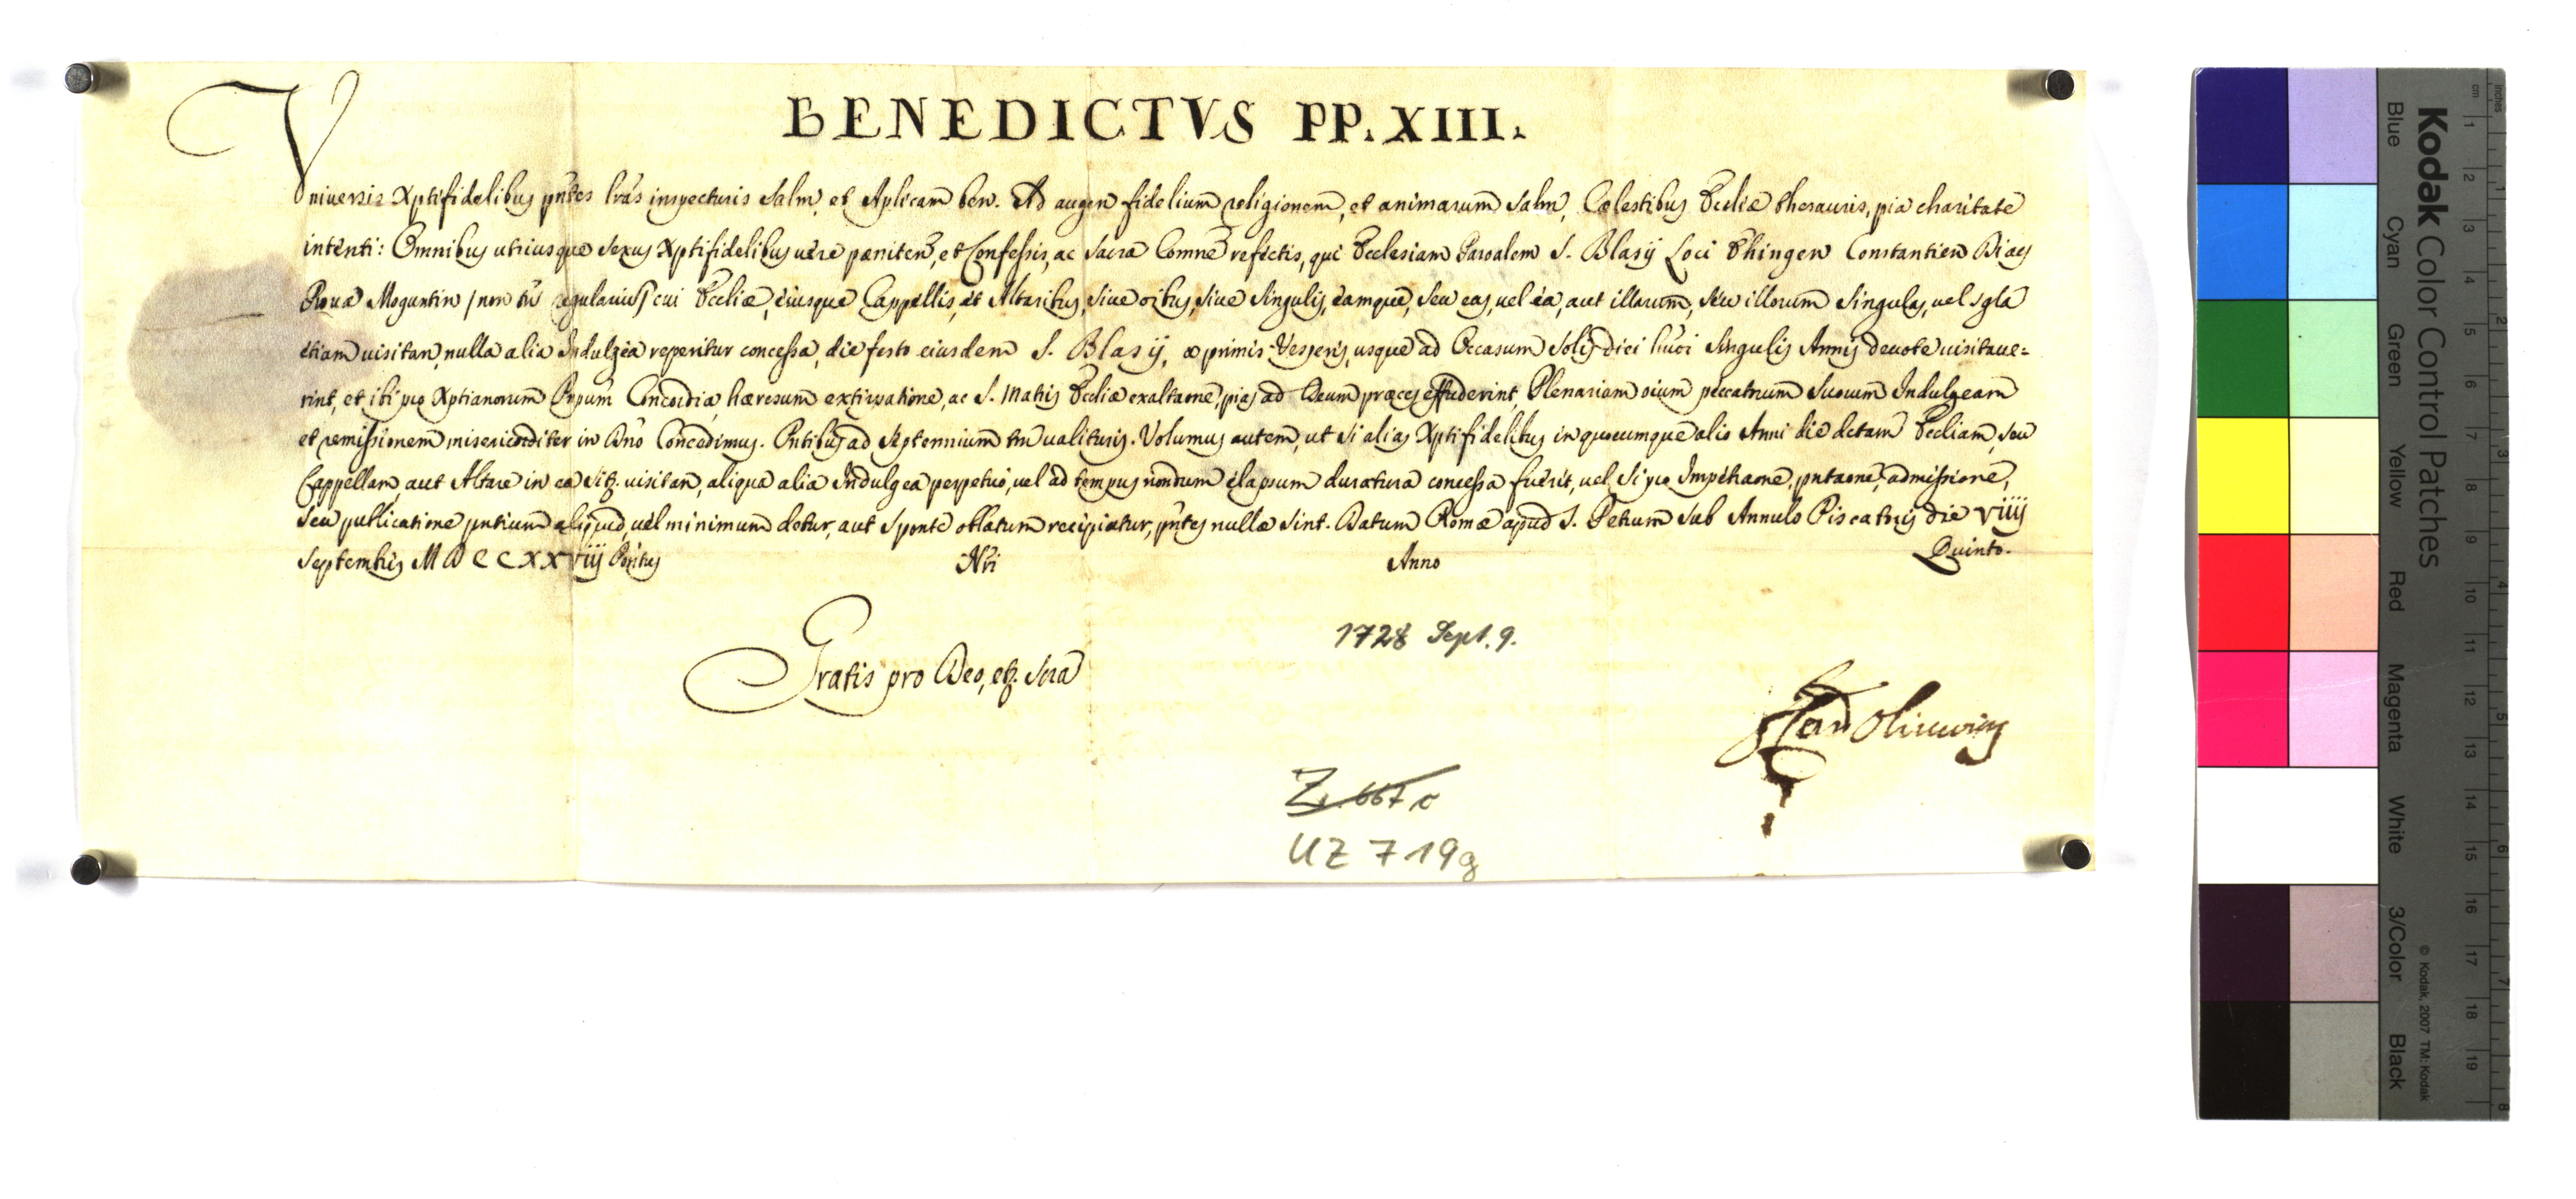 BENEDICTVS PP. XIII.
Vniversis Xptifidelibus pntes lras inspecturis Salm, et Aplicam ben. Ad augen fidelium religionem, et animarum Salm, Cælestibus Ecclie thesauris, pia charitate
intenti: Omnibus utriusque sexus Xptifidelibus vere pæniten, et Confessis, ac Sacra Comne refectis, qui Ecclesiam Paroalem S. Blasij Loci Ehingen Constantien Diæcs
Prouæ Moguntin / non tn regularium / cui Eccliæ, eiusque Cappellis, et Altaribus, siue oibus, siue Singulis, eamque, seu eas, uel ea, aut illarum, seu illorum Singulas, uel Sgla
etiam uisitan, nulla alia Indulgea reperitur concessa, die festo eiusdem S. Blasij, a primis Vesperis usque ad Occasum Solis diei hmoi Singulis Annis deuote uisitaue=
rint, et ibi pro Xptianorum Prpum Concordia, hæresum extirpatione, ac S. Matris Eccliæ exaltaone, pias ad Deum præces effuderint, Plenariam oium peccatorum Suorum Indulgeam
et remissionem misericorditer in Dno Concedimus. Pntibus ad Septennium tm ualituris. Volumus autem, ut si alias Xptifidelibus in quocumque alio Anni die dctam Eccliam, seu
Cappellam, aut Altare in ea sit. uisitan, aliqua alia Indulgea perpetuo, uel ad tempus nondum elapsum duratura concessa fuerit, uel si pro Impetraone, pntaone, admissione,
seu publicatione pntium aliquid, uel minimum detur, aut sponte oblatum recipiatur, pntes nullæ sint. Datum Romæ apud S. Petrum sub Annulo Piscatoris die viiij
Septembris MDCCXXViij Pontus Nri Anno Quinto.
1728 Sept. 9.
Gratis pro Deo, et Scra
F Card Oliuerius
Z. 667 c
UZ 719g
Kodak Color Control Patches
Blue Cyan Green Yellow Red Magenta White 3/Color Black
© Kodak, 2007 TM: Kodak
cm 1 2 3 4 5 6 7 8 9 10 11 12 13 14 15 16 17 18 19
inches 1 2 3 4 5 6 7 8